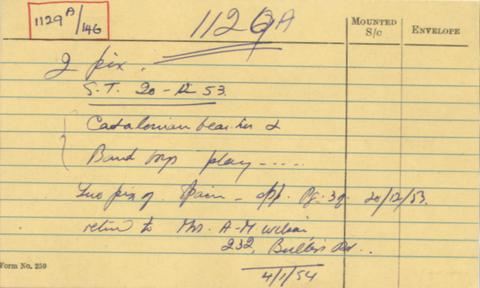 1129A/146
1129A
MOUNTED S/c
ENVELOPE
2 pix.
S.T. 20-12 53.
Catalonian beaches &
play.....
Two pix of Spain - opp. Pg. 39. 20/12/53.
return to Mrs. A-M Wilson
232,
4/1/54
Form No. 259